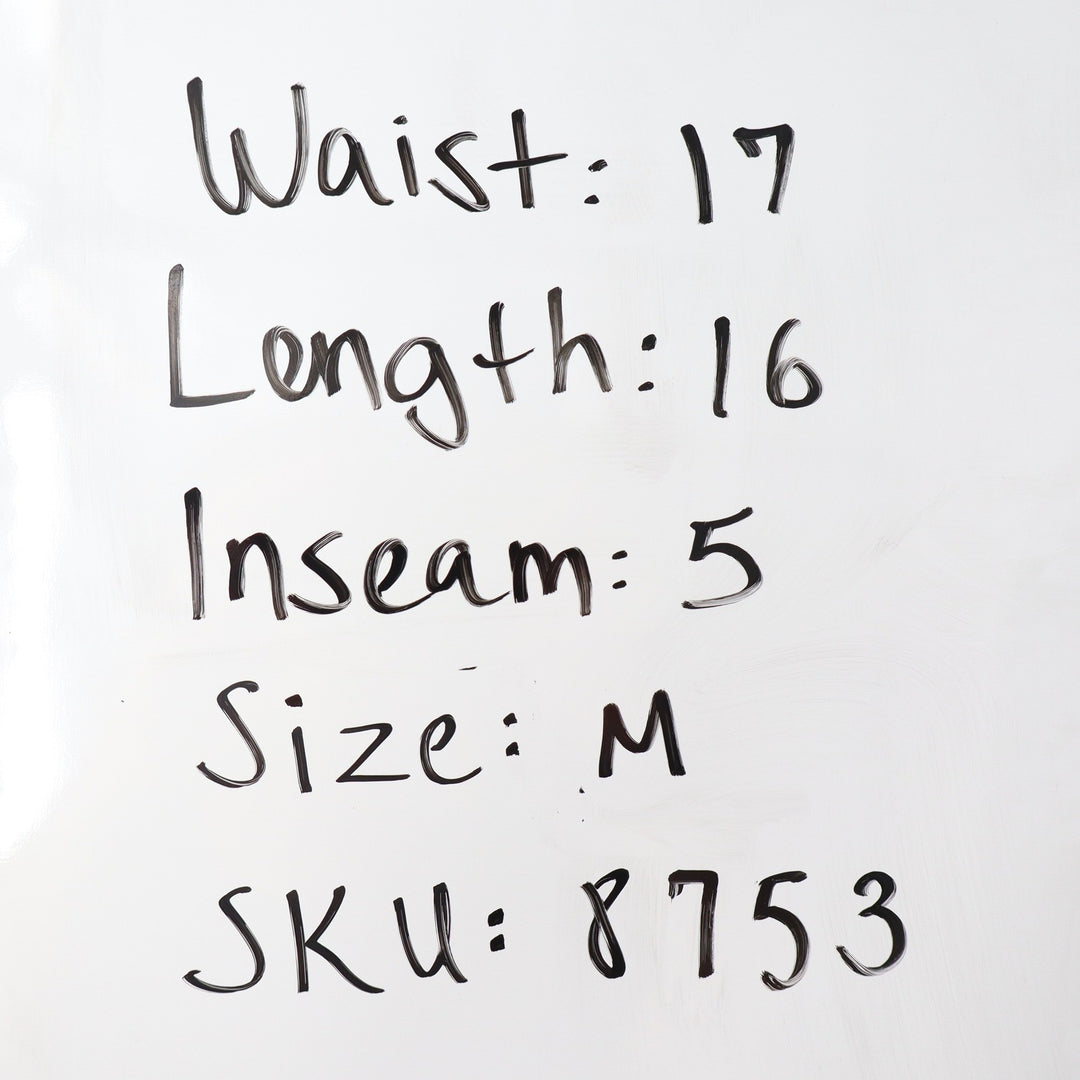 Waist: 17
Length: 16
Inseam: 5
Size: M
SKU: 8753